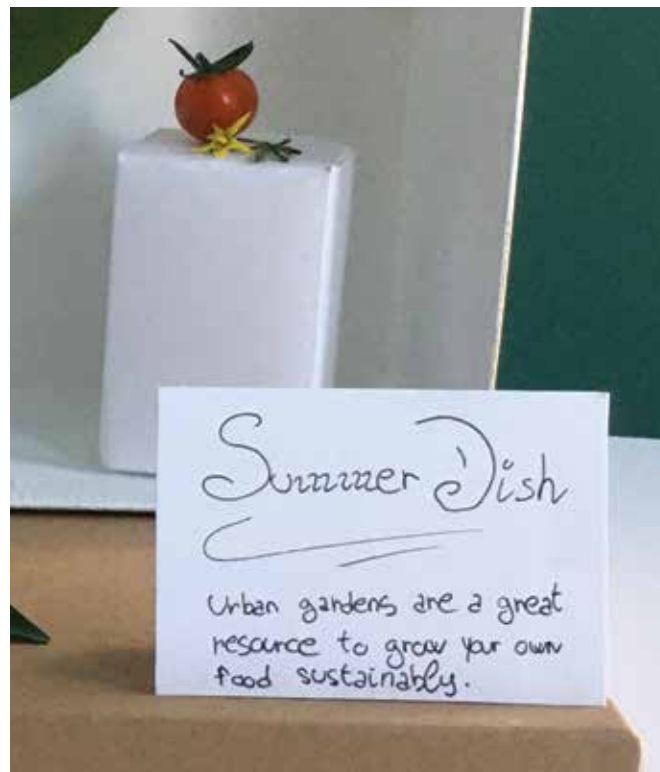 Summer Dish
Urban gardens are a great
resource to grow your own
food sustainably.